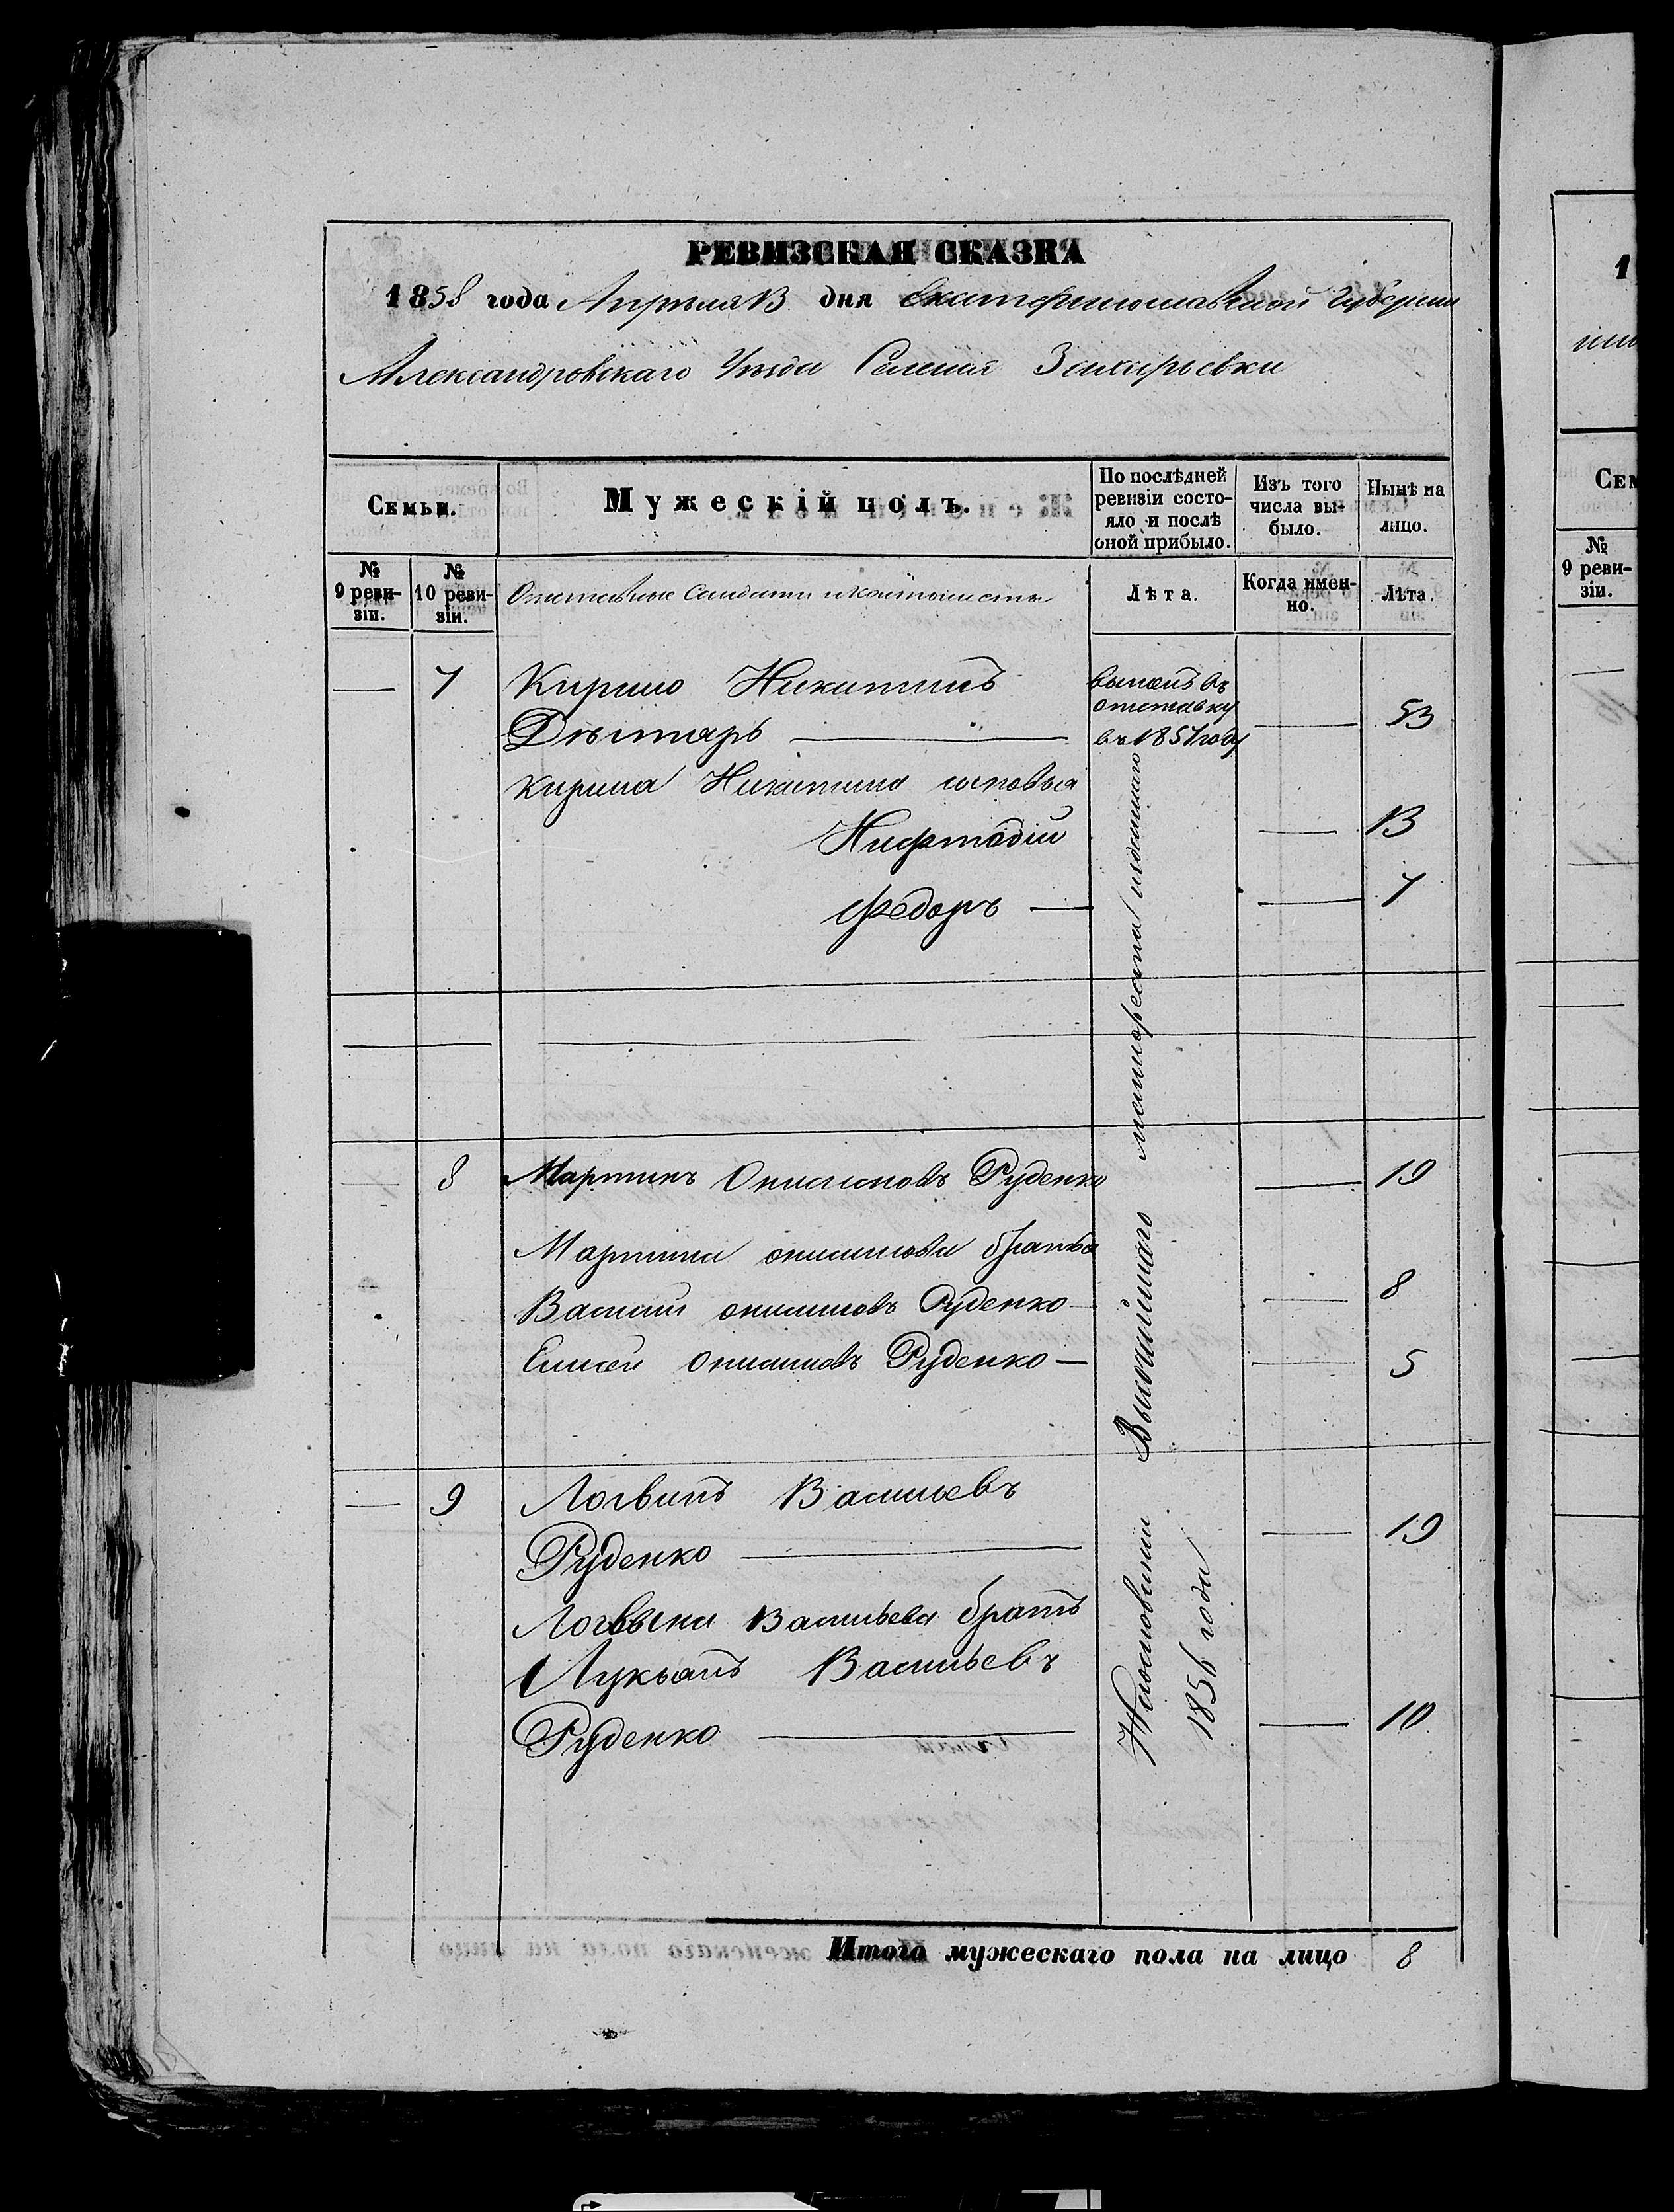 РЕВИЗСКАЯ СКАЗКА
1858 года Апрѣля 13 дня Екатеринославской Губерніи
Александровскаго Уѣзда Селенія Захарьевки
Семьи.
Мужескій полъ.
По послѣдней ревизіи состо-
яло и послѣ
оной прибыло.
Изъ того
числа вы-
было.
Нынѣ на
лицо.
№
9 реви-
зіи.
№
10 реви-
зіи.
Отставные Солдаты и кантонисты
Лѣта.
Когда имен-
но.
Лѣта.
— 7 Кирило Никитинъ
Дѣгтярь —
вышелъ въ
отставку
въ 1857 году
— 53
Кирила Никитина сыновья
Нифтодій — 13
Федоръ — — 7
8 Мартинъ Онисимовъ Руденко — 19
Мартина онисимова братья
Василій онисимовъ Руденко — — 8
Елисей Онисимовъ Руденко — — 5
— 9 Логвинъ Васильевъ
Руденко — — 19
Логвына Васильева братъ
Лукьянъ Васильевъ
Руденко — — 10
На основаніи Высочайшаго манифеста изданнаго
1856 года
Итого мужескаго пола на лицо 8
1
Сем
№
9 реви-
зіи.